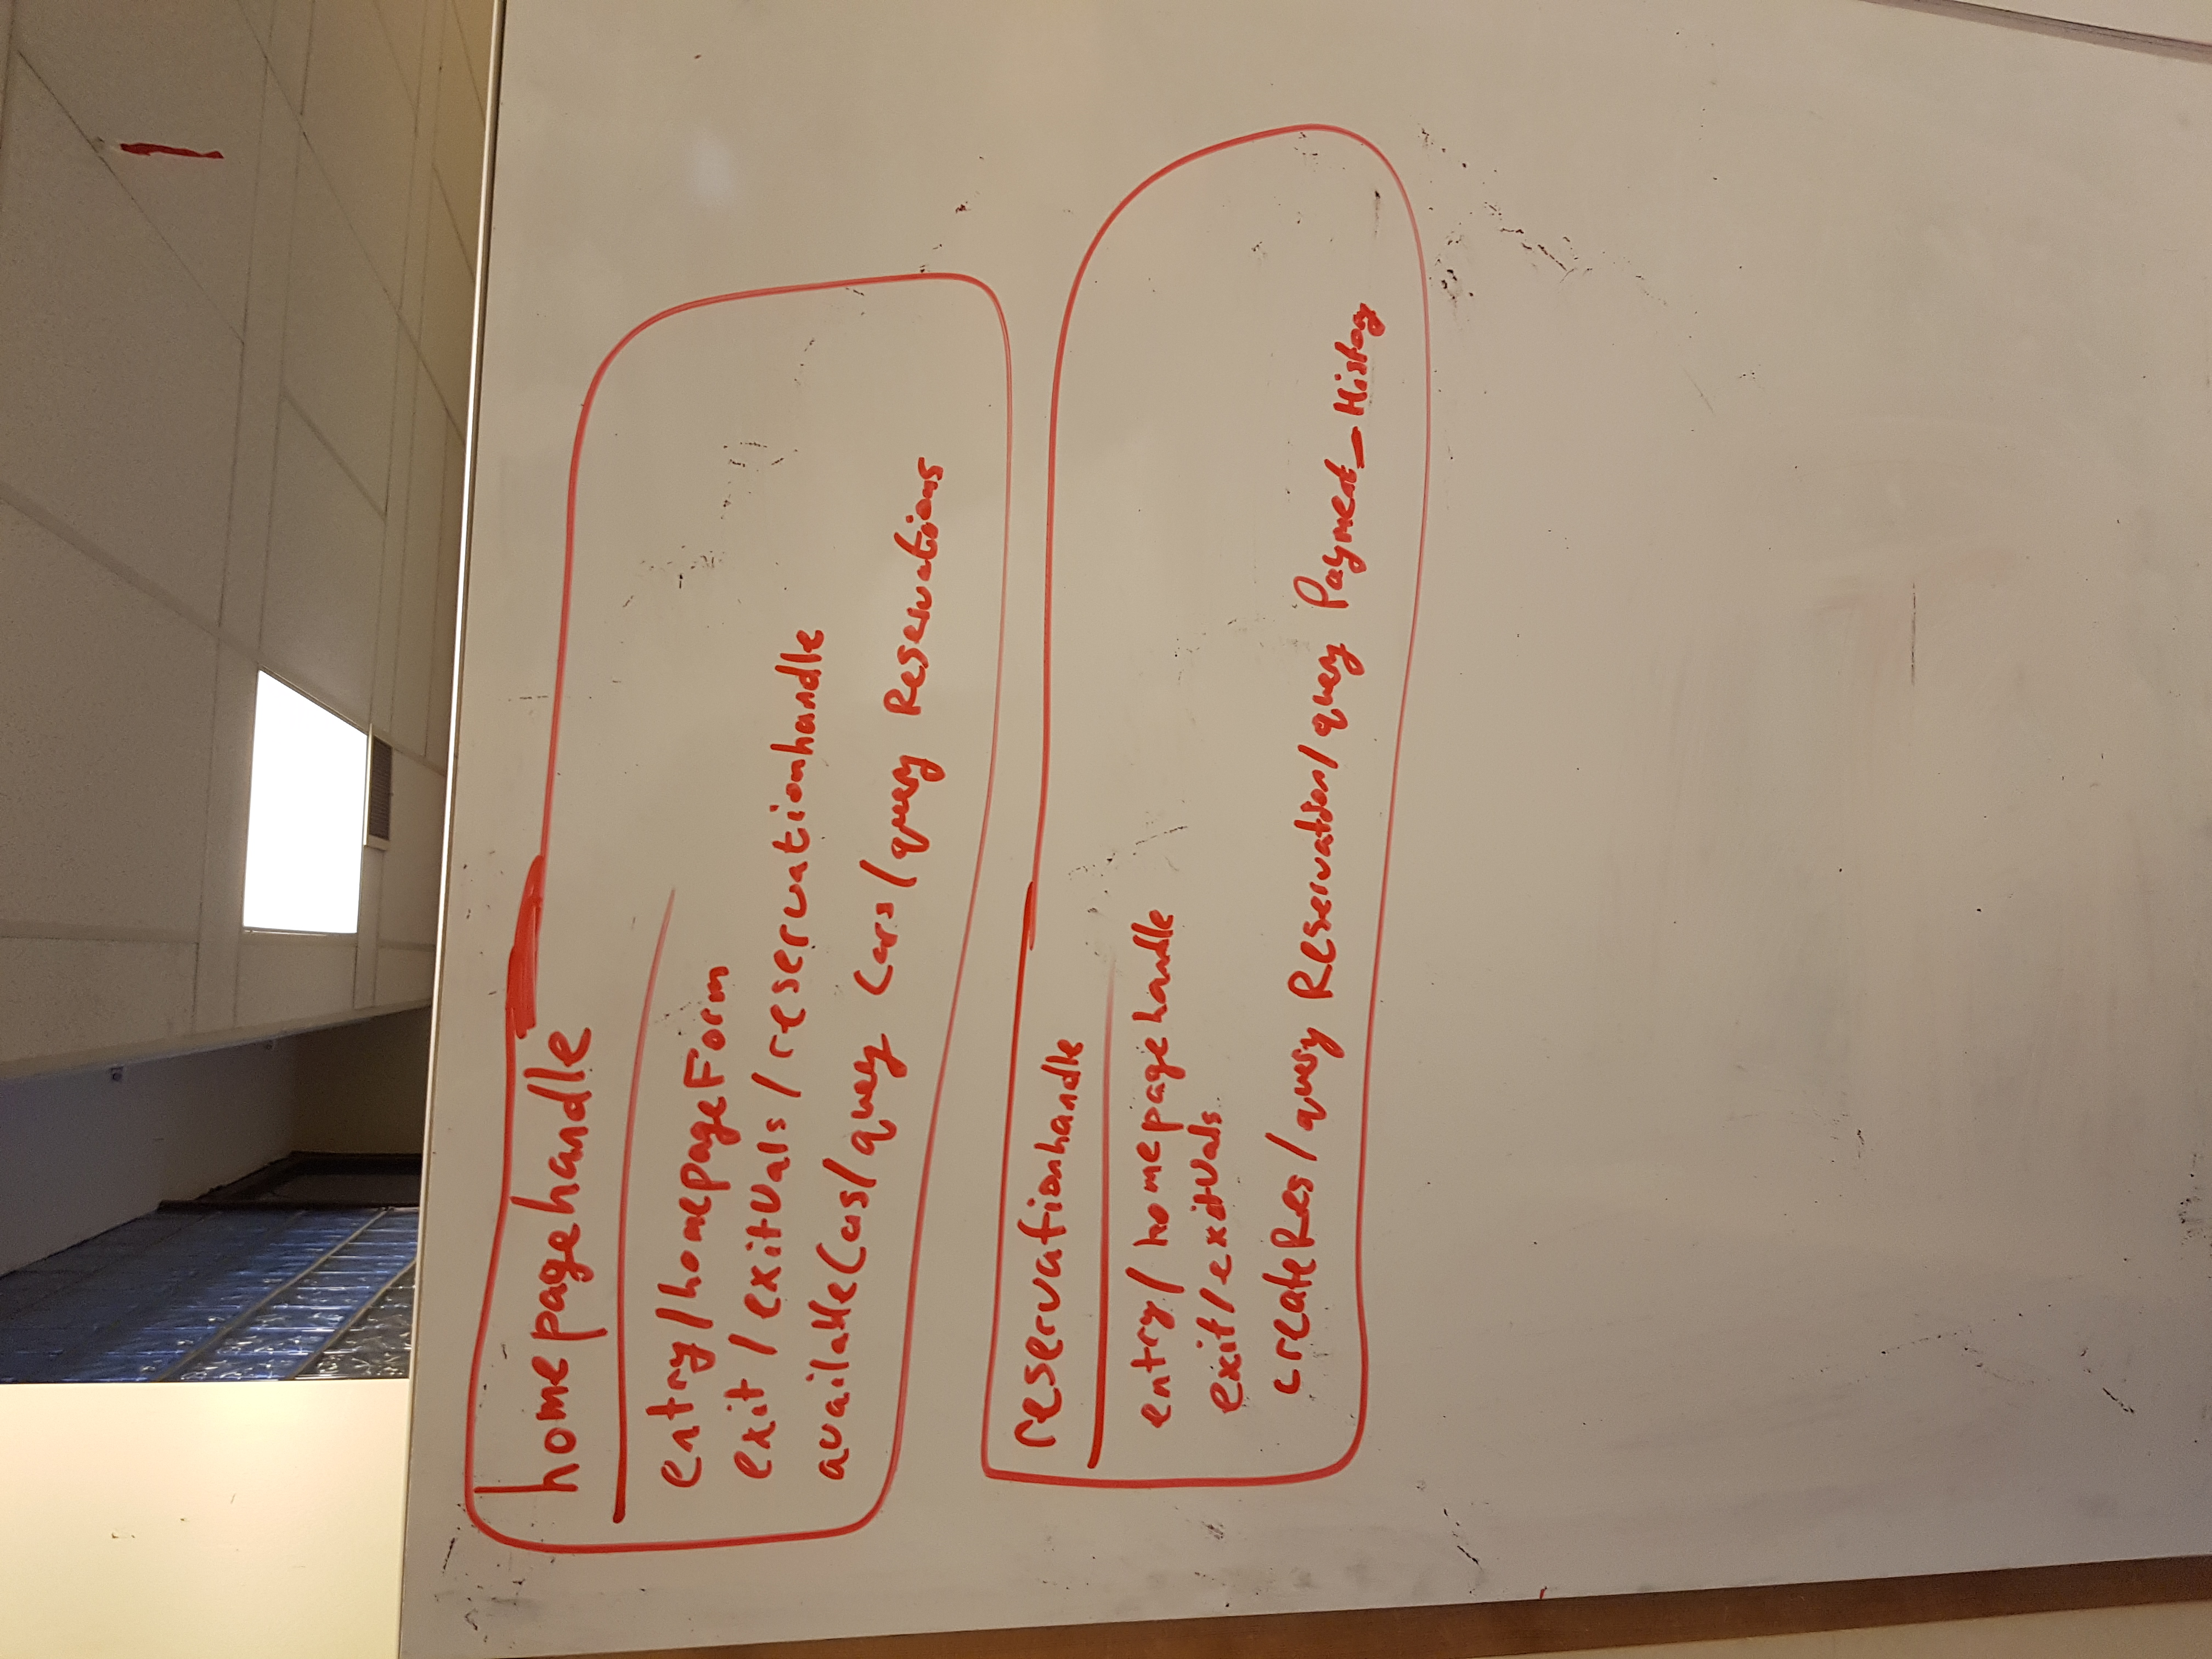 homepagehandle
entry/homepageForm
exit/exitVals/reservationhandle
availableCars/query Cars/query Reservations
reservationhandle
entry/homepagehandle
exit/exitVals
createRes/query Reservation/query Payment_History